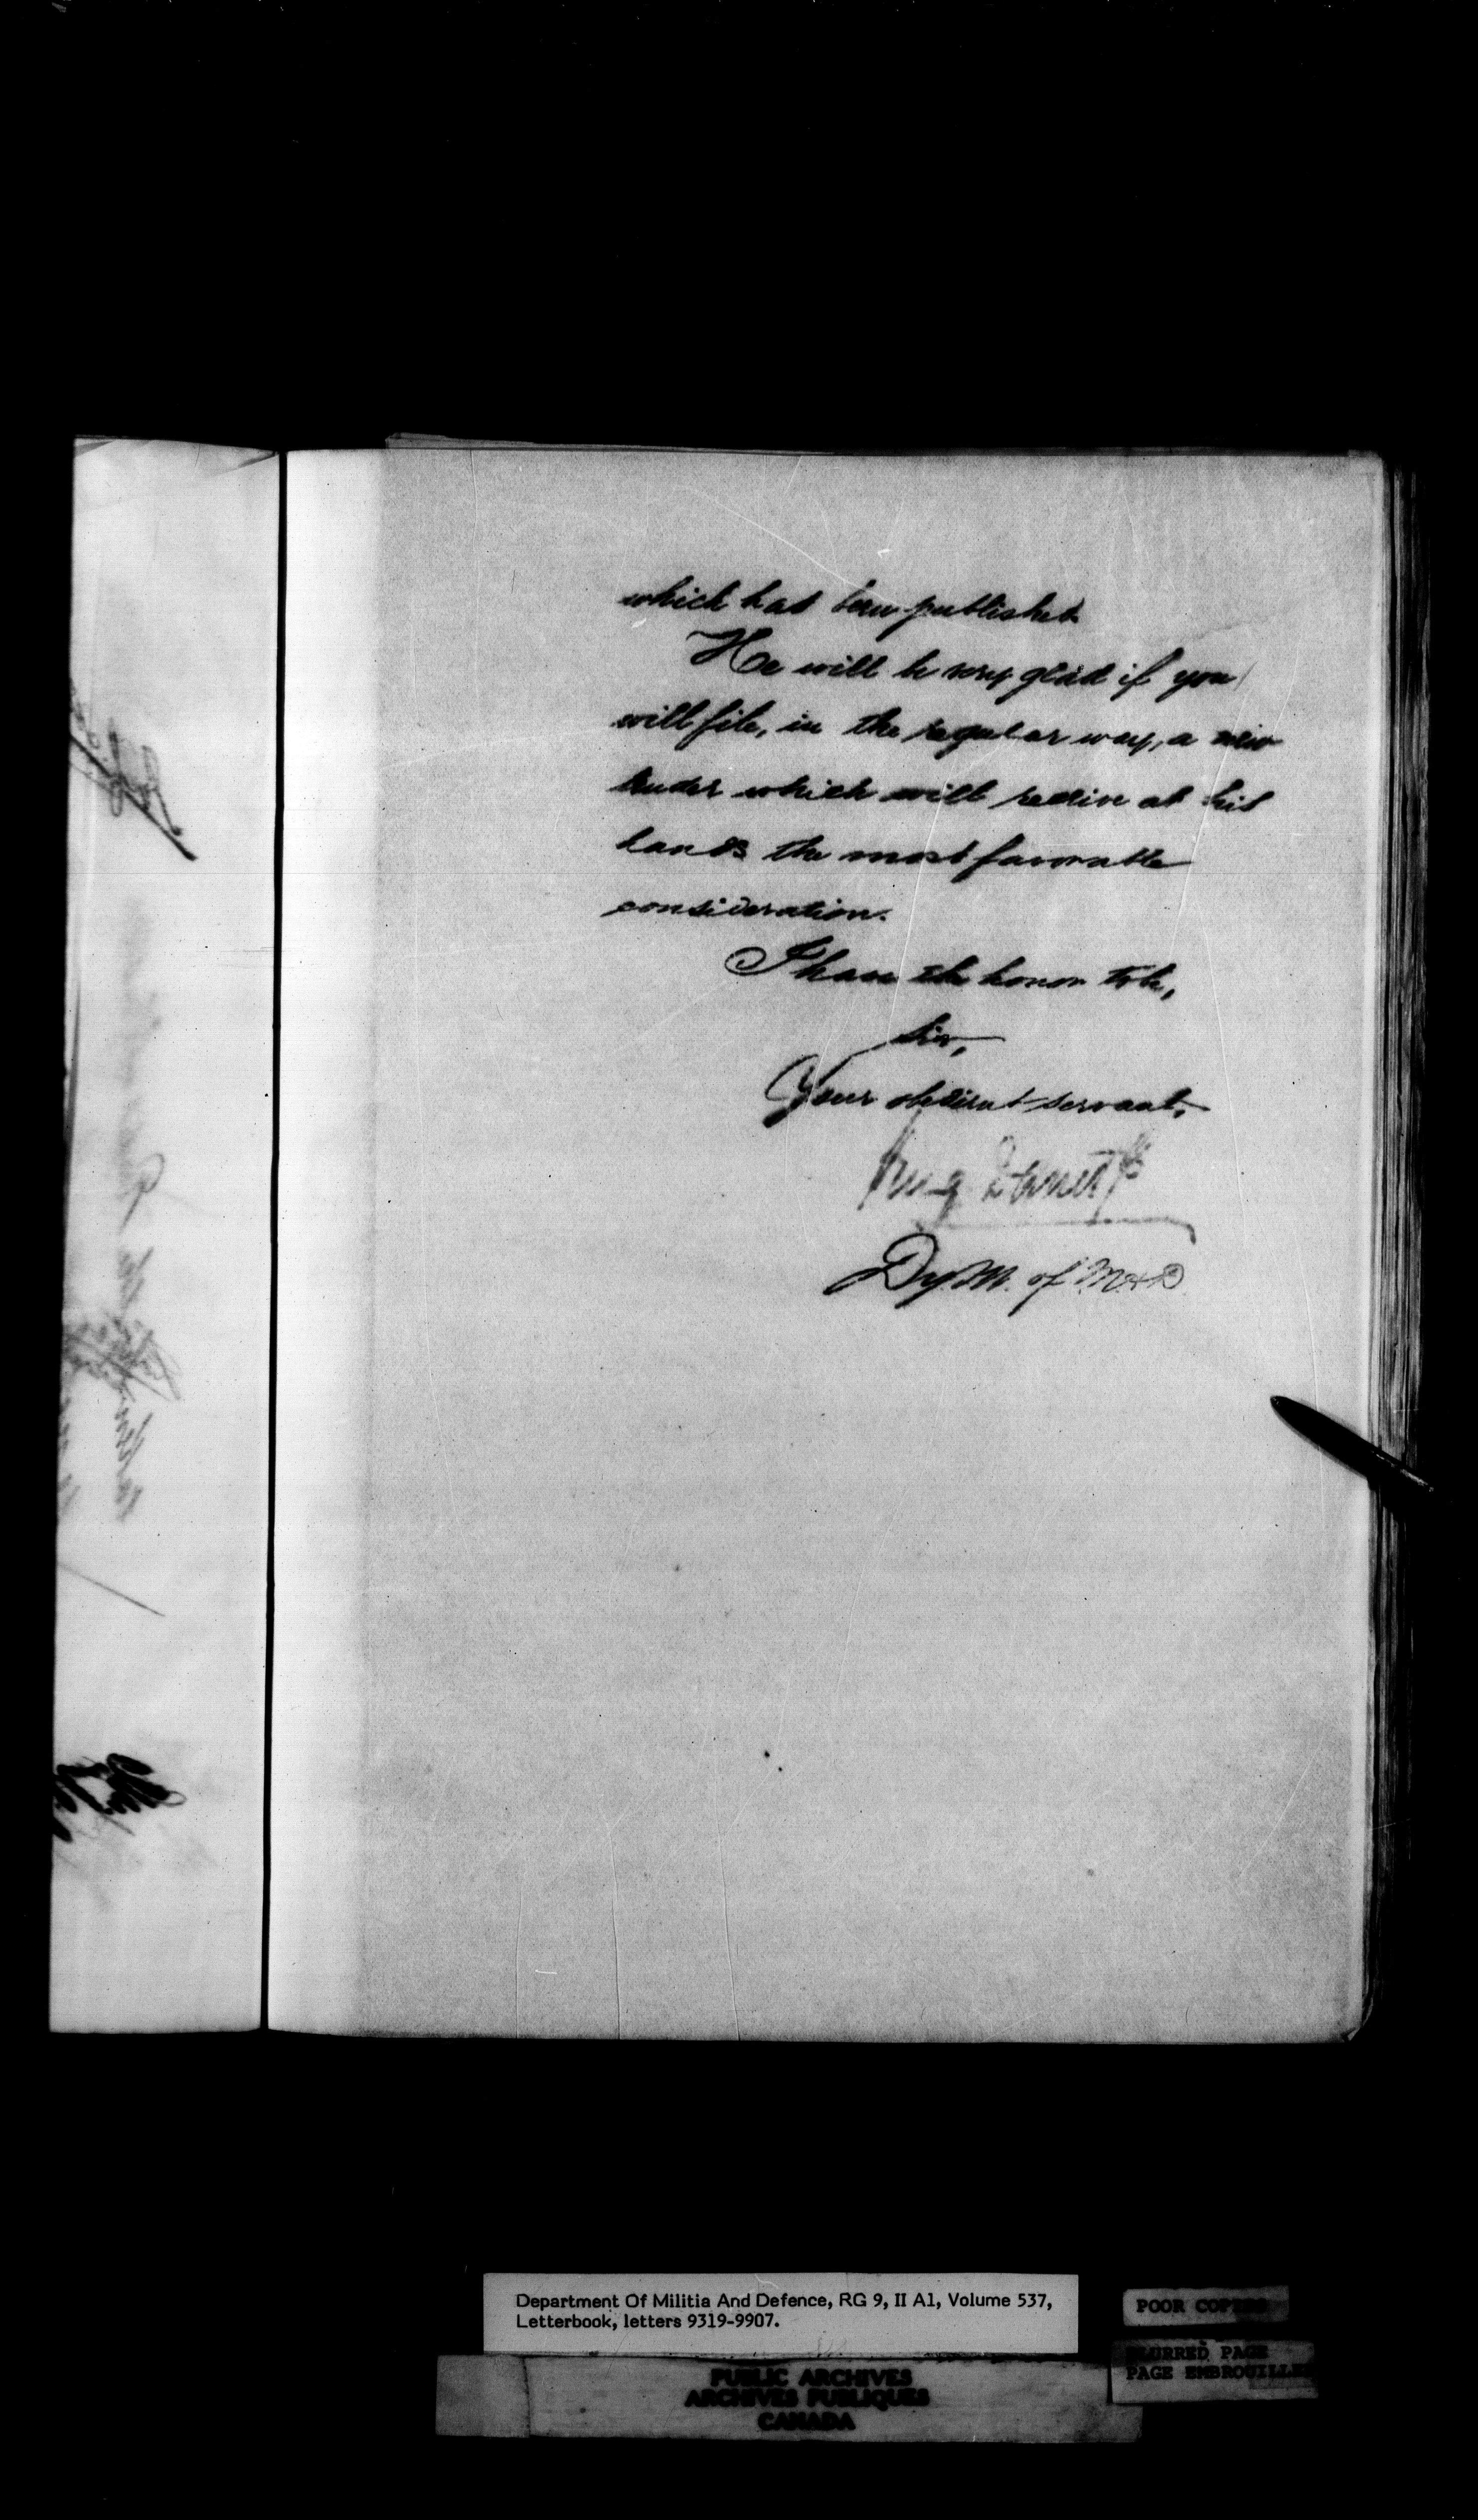 which has been published
He will be very glad if you
will file, in the regular way, a new
tender which will receive at his
hands the most favorable
consideration.
I have the honor to be,
Sir,
Your obedient servant,
Dy. M. of M & D
Department Of Militia And Defence, RG 9, II A1, Volume 537,
Letterbook, letters 9319-9907.
POOR COPIES
BLURRED PAGE
PAGE EMBROUILLEE
PUBLIC ARCHIVES
ARCHIVES PUBLIQUES
CANADA